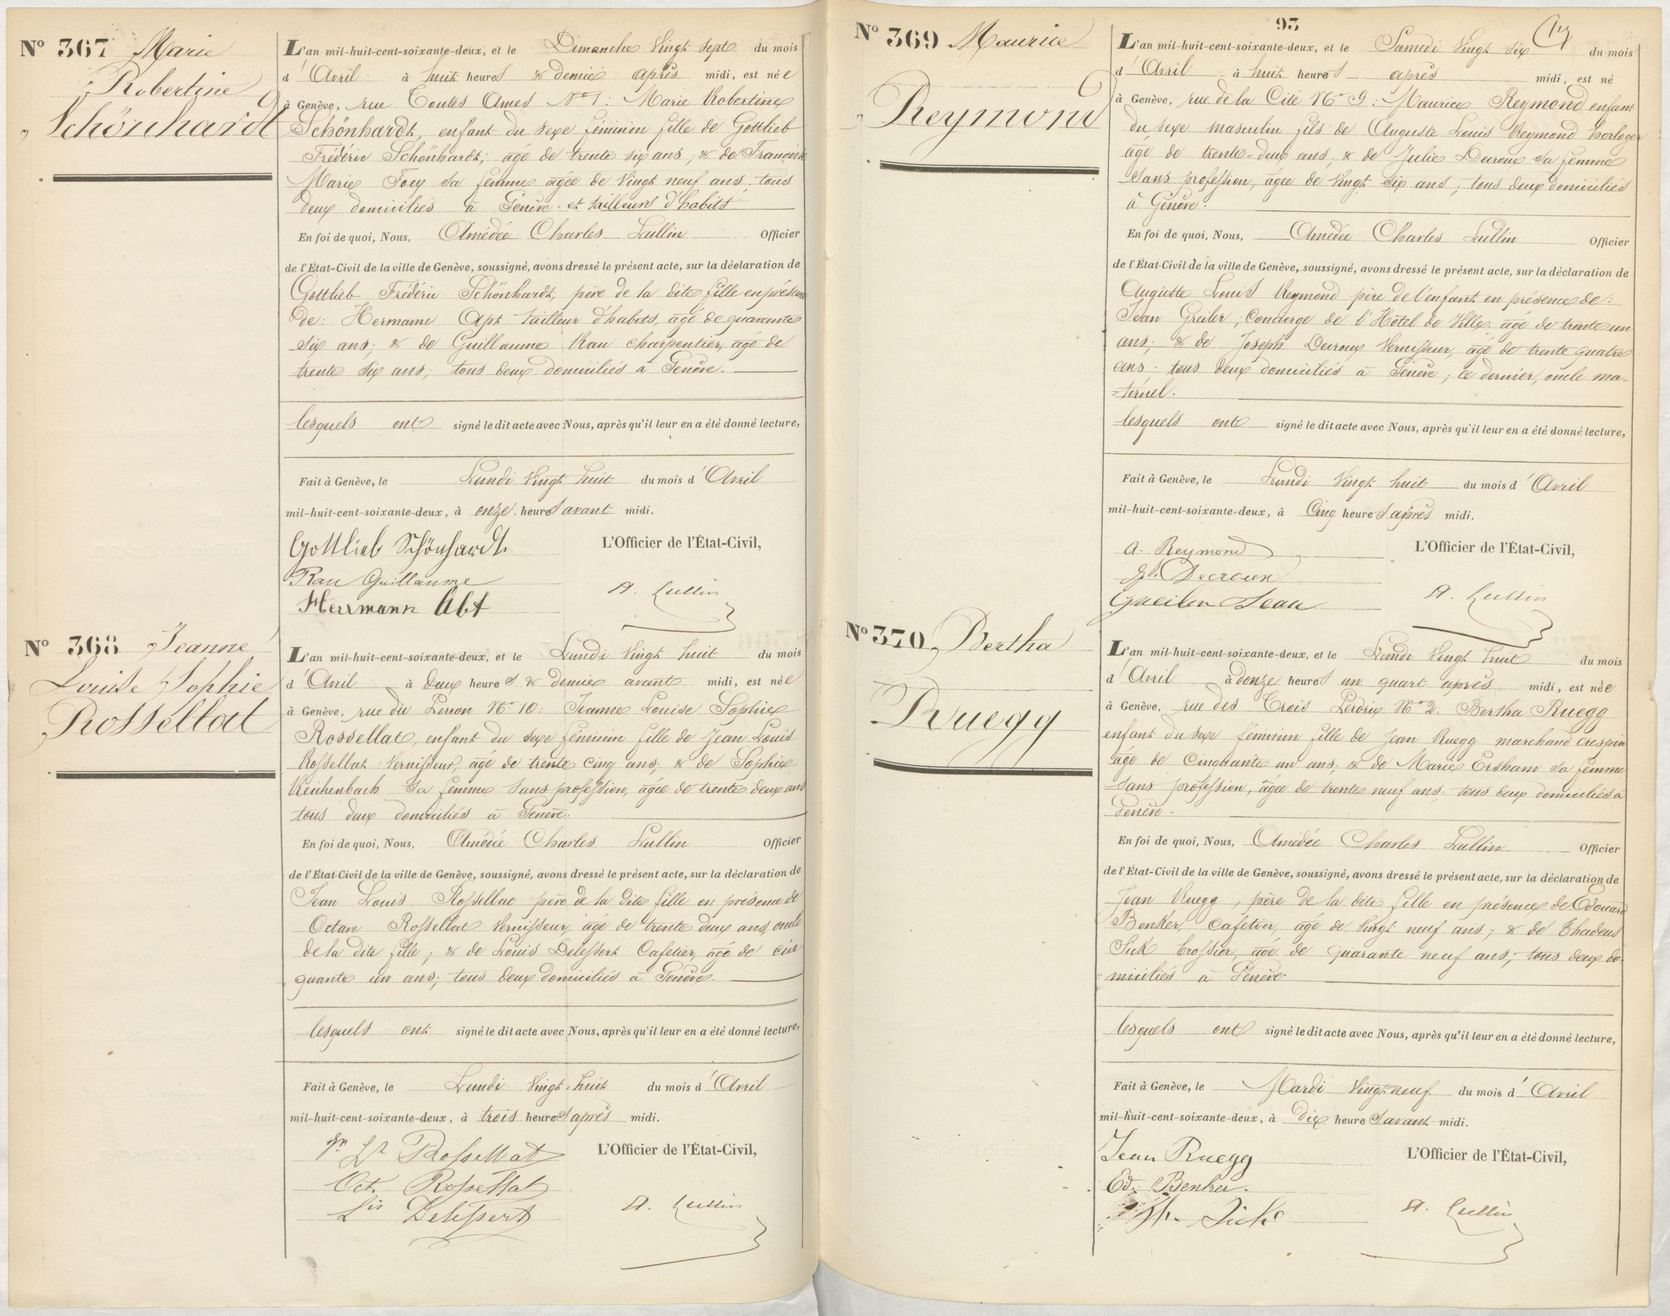 Nº 367 Marie
Robertine
Schönhardt
L'an mil-huit-cent-soixante-deux, et le Dimanche Vingt sept du mois
d'Avril à huit heures & demie après midi, est née
à Genève, rue Toutes Ames Nº 1: Marie Robertine
Schönhardt, enfant du sexe féminin fille de Gottlieb
Frédéric Schönhardt, âgé de trente six ans, & de Françoise
Marie sa femme âgée de Vingt neuf ans, tous
deux domiciliés à Genève et tailleurs d'habits
En foi de quoi, Nous, Amédée Charles Lullin Officier
de l'État-Civil de la ville de Genève, soussigné, avons dressé le présent acte, sur la déclaration de
Gottlieb Frédéric Schönhardt, père de la dite fille en présence
de: Hermann Apt tailleur d'habits, âgé de quarante
six ans; & de Guillaume Rau charpentier, âgé de
trente six ans; tous deux domiciliés à Genève.
lesquels ont signé le dit acte avec Nous, après qu'il leur en a été donné lecture,
Fait à Genève, le Lundi Vingt huit du mois d'Avril
mil-huit-cent-soixante-deux, à onze heures avant midi.
Gottlieb Schönhardt L'Officier de l'État-Civil,
Rau Guillaume
Herrmann Abt A. Lullin
Nº 368 Jeanne
Louise Sophie
Rossellat
L'an mil-huit-cent-soixante-deux, et le Lundi Vingt huit du mois
d'Avril à Deux heures & demie avant midi, est née
à Genève, rue du Perron Nº 10: Jeanne Louise Sophie
Rossellat, enfant du sexe féminin fille de Jean Louis
Rossellat Vernisseur, âgé de trente cinq ans, & de Sophie
Reichenbach sa femme sans profession, âgée de trente deux ans
tous deux domiciliés à Genève.
En foi de quoi, Nous, Amédée Charles Lullin Officier
de l'État-Civil de la ville de Genève, soussigné, avons dressé le présent acte, sur la déclaration de
Jean Louis Rossellat père de la dite fille en présence de
Octave Rossellat Vernisseur, âgé de trente deux ans, oncle
de la dite fille; & de Louis Delessert Cafetier, âgé de cin-
quante un ans; tous deux domiciliés à Genève.
lesquels ont signé le dit acte avec Nous, après qu'il leur en a été donné lecture,
Fait à Genève, le Lundi Vingt huit du mois d'Avril
mil-huit-cent-soixante-deux, à trois heures après midi.
Jn Ls Rossellat L'Officier de l'État-Civil,
Oct. Rossellat
Lis Delessert A. Lullin
93
Nº 369 Maurice
Reymond
L'an mil-huit-cent-soixante-deux, et le Samedi Vingt six du mois
d'Avril à huit heures après midi, est né
à Genève, rue de la Cité Nº 9: Maurice Reymond enfant
du sexe masculin fils de Auguste Louis Reymond horloger
âgé de trente-deux ans, & de Julie Decroux sa femme
sans profession, âgée de Vingt six ans; tous deux domiciliés
à Genève.
En foi de quoi, Nous, Amédée Charles Lullin Officier
de l'État-Civil de la ville de Genève, soussigné, avons dressé le présent acte, sur la déclaration de
Auguste Louis Reymond père de l'enfant en présence de:
Jean Concierge de l'Hôtel de Ville, âgé de trente un
ans; & de Joseph Decroux Vernisseur, âgé de trente quatre
ans: tous deux domiciliés à Genève; ce dernier, oncle ma-
=ternel.
lesquels ont signé le dit acte avec Nous, après qu'il leur en a été donné lecture,
Fait à Genève, le Lundi Vingt huit du mois d'Avril
mil-huit-cent-soixante-deux, à Cinq heures après midi.
A. Reymond L'Officier de l'État-Civil,
Decroux
Jean A. Lullin
Nº 370 Bertha
Ruegg
L'an mil-huit-cent-soixante-deux, et le Lundi Vingt huit du mois
d'Avril à douze heures un quart après midi, est née
à Genève, rue des Trois Perdrix Nº 2: Bertha Ruegg
enfant du sexe féminin fille de Jean Ruegg marchand crespin
âgé de Cinquante un ans, & de Marie Ersham sa femme
sans profession, âgée de trente neuf ans; tous deux domiciliés à
Genève.
En foi de quoi, Nous, Amédée Charles Lullin Officier
de l'État-Civil de la ville de Genève, soussigné, avons dressé le présent acte, sur la déclaration de
Jean Ruegg, père de la dite fille en présence de Edouard
Benker, Cafetier, âgé de Vingt neuf ans; & de Thadeus
Sick brossier, âgé de quarante neuf ans; tous deux do-
miciliés à Genève
lesquels ont signé le dit acte avec Nous, après qu'il leur en a été donné lecture,
Fait à Genève, le Mardi Vingt-neuf du mois d'Avril
mil-huit-cent-soixante-deux, à Dix heures avant midi.
Jean Ruegg L'Officier de l'État-Civil,
Ed. Benker.
Th. Sick A. Lullin